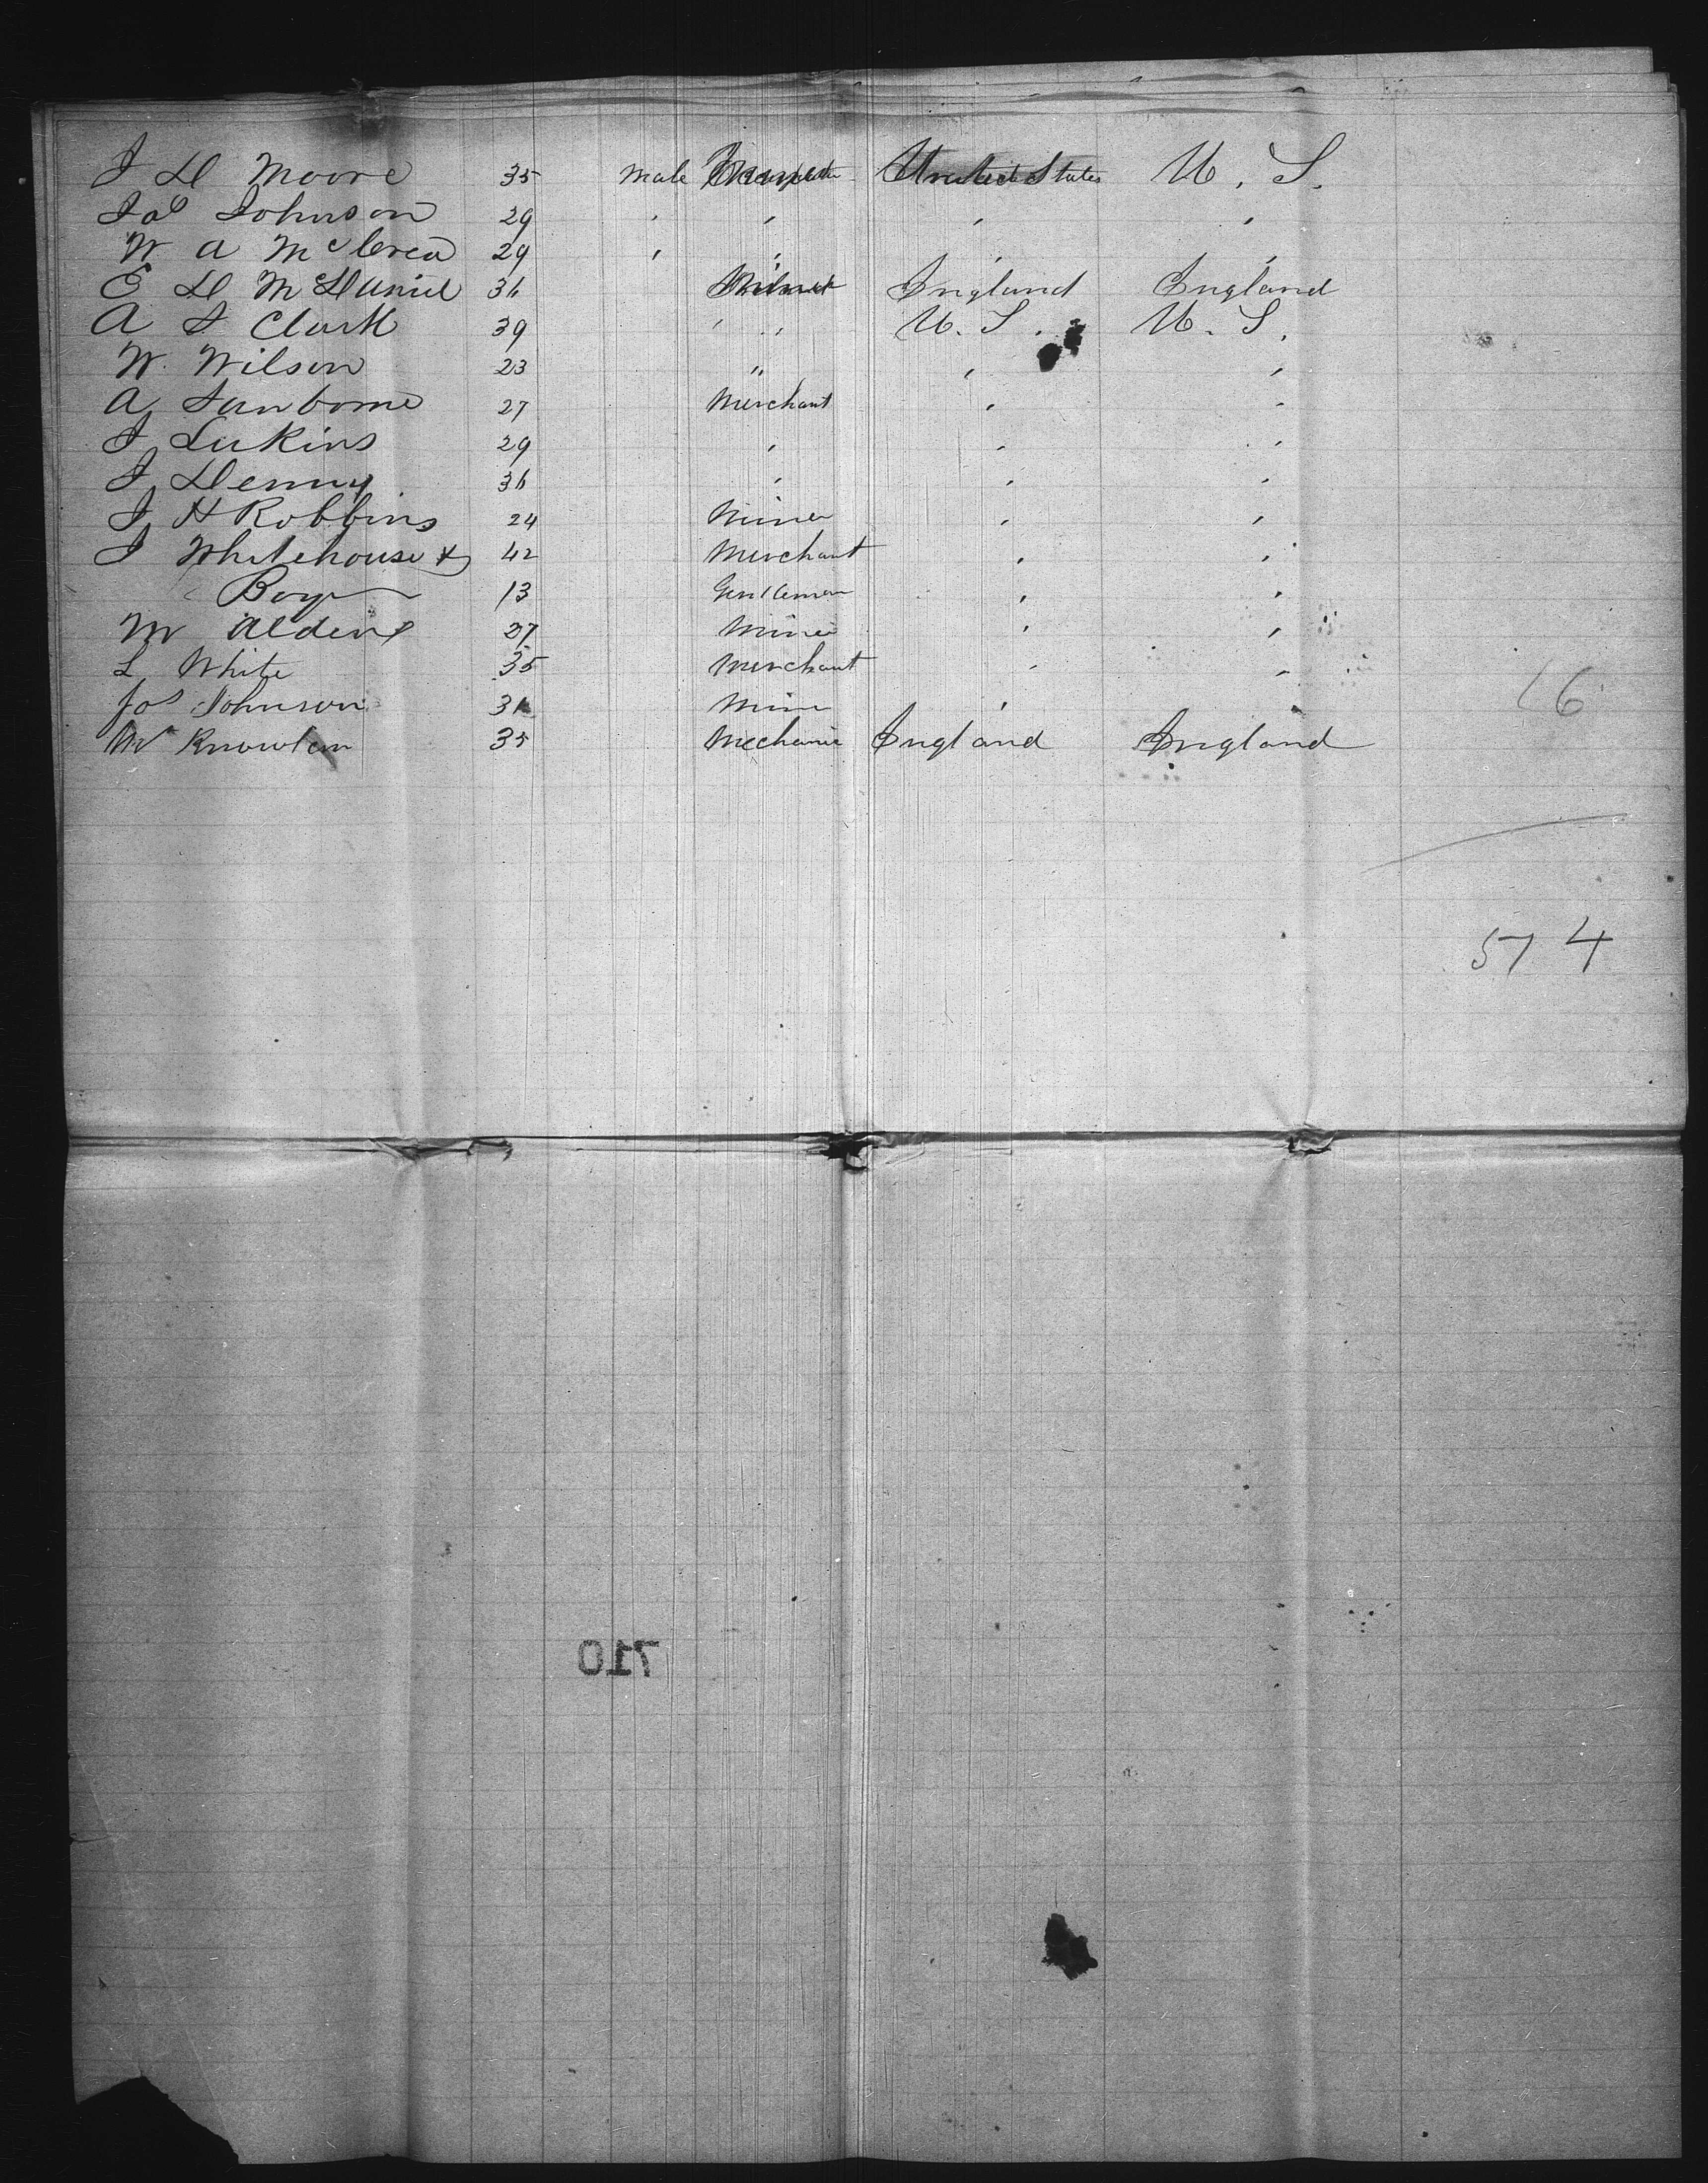 J D Moore 35 Male United States U. S.
Jas Johnson 29 " " " "
W A McCrea 29 " " " "
E D McDaniel 36 Miner England England
A S Clark 39 " " U. S. U. S.
W. Wilson 23 " " "
A Sanborne 27 Merchant " "
J Lukins 29 " " "
J Denny 36 " " "
J H Robbins 24 Miner " "
J Whitehouse & 42 Merchant " "
Boy 13 Gentleman " "
M Alden 27 Miner " "
L White 35 Merchant " "
Jas Johnson 31 Miner " "
W Knowlem 35 Mechanic England England
16
57 4
710